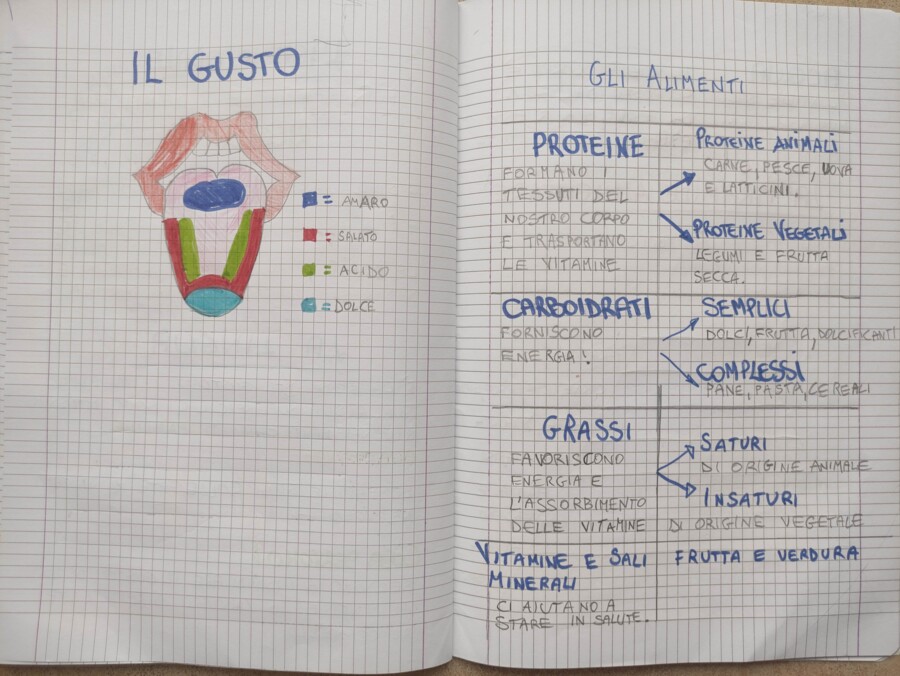 IL GUSTO
= AMARO
= SALATO
= ACIDO
= DOLCE
GLI ALIMENTI
PROTEINE
FORMANO I
TESSUTI DEL
NOSTRO CORPO
E TRASPORTANO
LE VITAMINE
PROTEINE ANIMALI
CARNE, PESCE, UOVA
E LATTICINI.
PROTEINE VEGETALI
LEGUMI E FRUTTA
SECCA.
CARBOIDRATI
FORNISCONO
ENERGIA!
SEMPLICI
DOLCI, FRUTTA, DOLCIFICANTI
COMPLESSI
PANE, PASTA, CEREALI
GRASSI
FAVORISCONO
ENERGIA E
L'ASSORBIMENTO
DELLE VITAMINE
SATURI
DI ORIGINE ANIMALE
INSATURI
DI ORIGINE VEGETALE
VITAMINE E SALI
MINERALI
CI AIUTANO A
STARE IN SALUTE.
FRUTTA E VERDURA